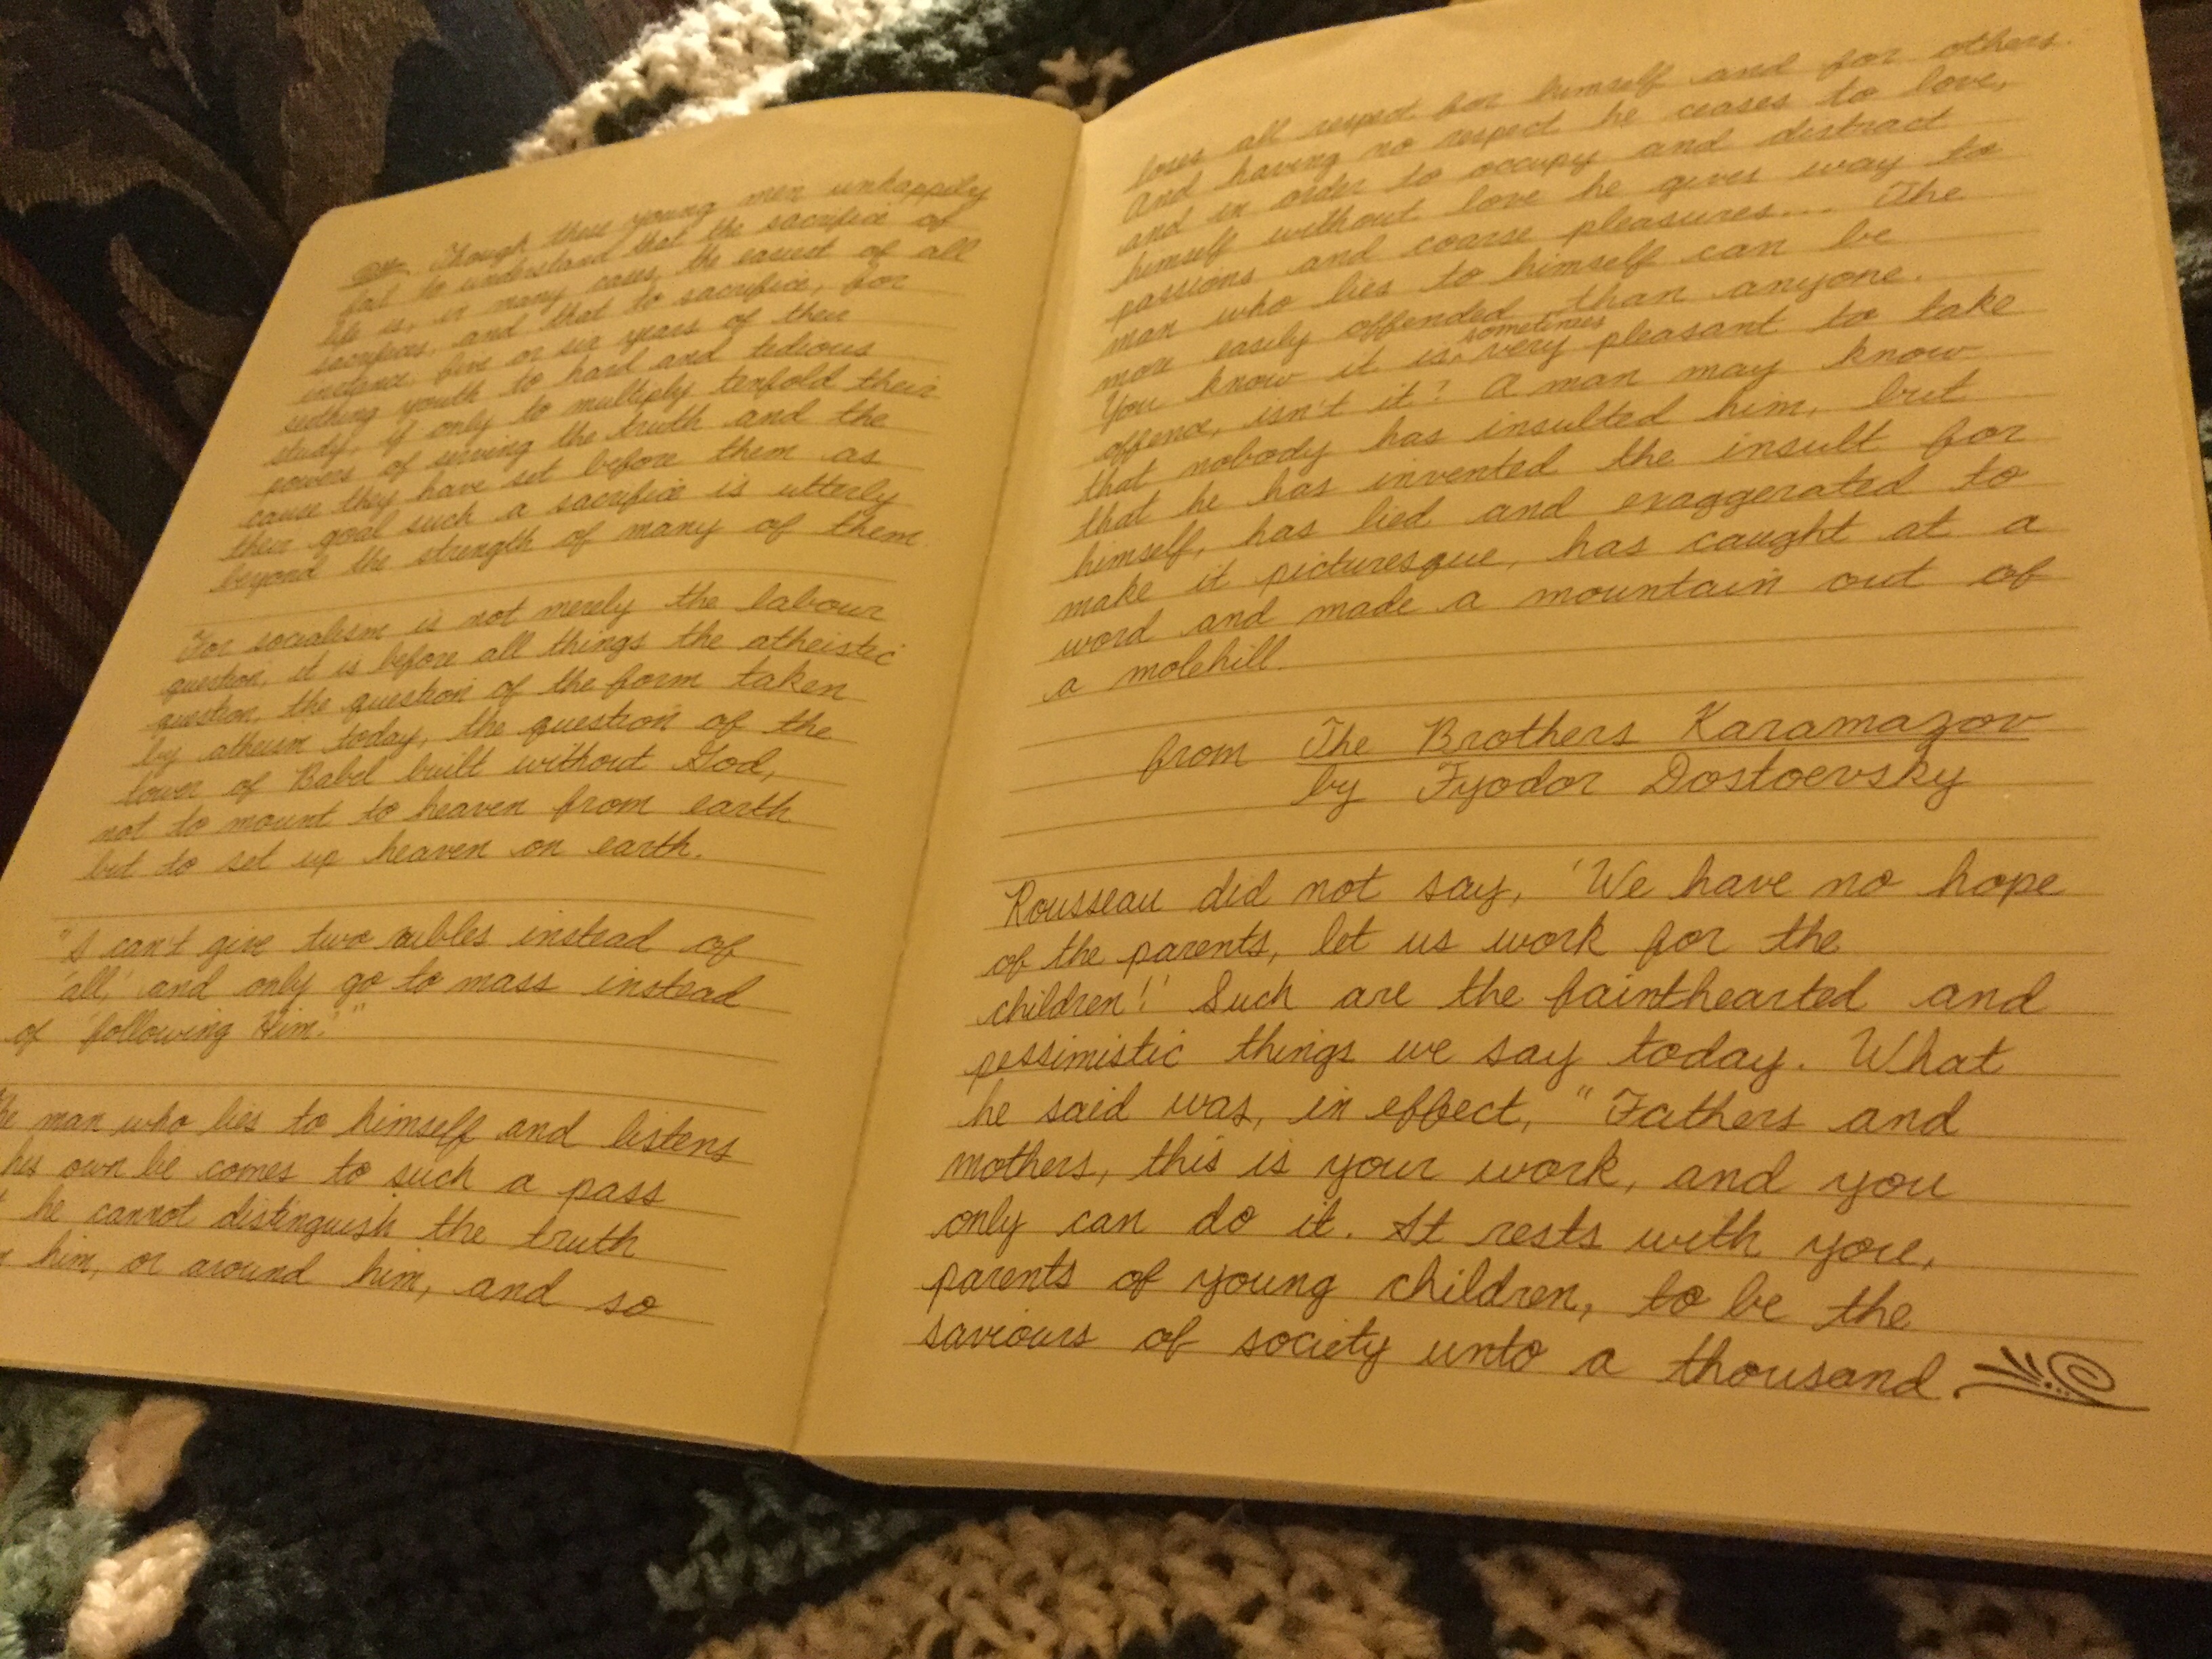 Though these young men unhappily
fail to understand that the sacrifice of
life is, in many cases, the easiest of all
sacrifices, and that to sacrifice, for
instance, five or six years of their
seething youth to hard and tedious
study, if only to multiply tenfold their
powers of serving the truth and the
cause they have set before them as
their goal such a sacrifice is utterly
beyond the strength of many of them
For socialism is not merely the labour
question, it is before all things the atheistic
question, the question of the form taken
by atheism today, the question of the
tower of Babel built without God,
not to mount to heaven from earth
but to set up heaven on earth.
"I can't give two rubles instead of
'all,' and only go to mass instead
of 'following Him.'"
man who lies to himself and listens
his own lie comes to such a pass
he cannot distinguish the truth
him, or around him, and so
loses all respect for himself and for others.
And having no respect he ceases to love,
and in order to occupy and distract
himself without love he gives way to
passions and coarse pleasures... The
man who lies to himself can be
more easily offended than anyone.
You know it is sometimes very pleasant to take
offence, isn't it? A man may know
that nobody has insulted him, but
that he has invented the insult for
himself, has lied and exaggerated to
make it picturesque, has caught at a
word and made a mountain out of
a molehill.
from The Brothers Karamazov
by Fyodor Dostoevsky
Rousseau did not say, 'We have no hope
of the parents, let us work for the
children!' Such are the fainthearted and
pessimistic things we say today. What
he said was, in effect, "Fathers and
mothers, this is your work, and you
only can do it. It rests with you,
parents of young children, to be the
saviours of society unto a thousand